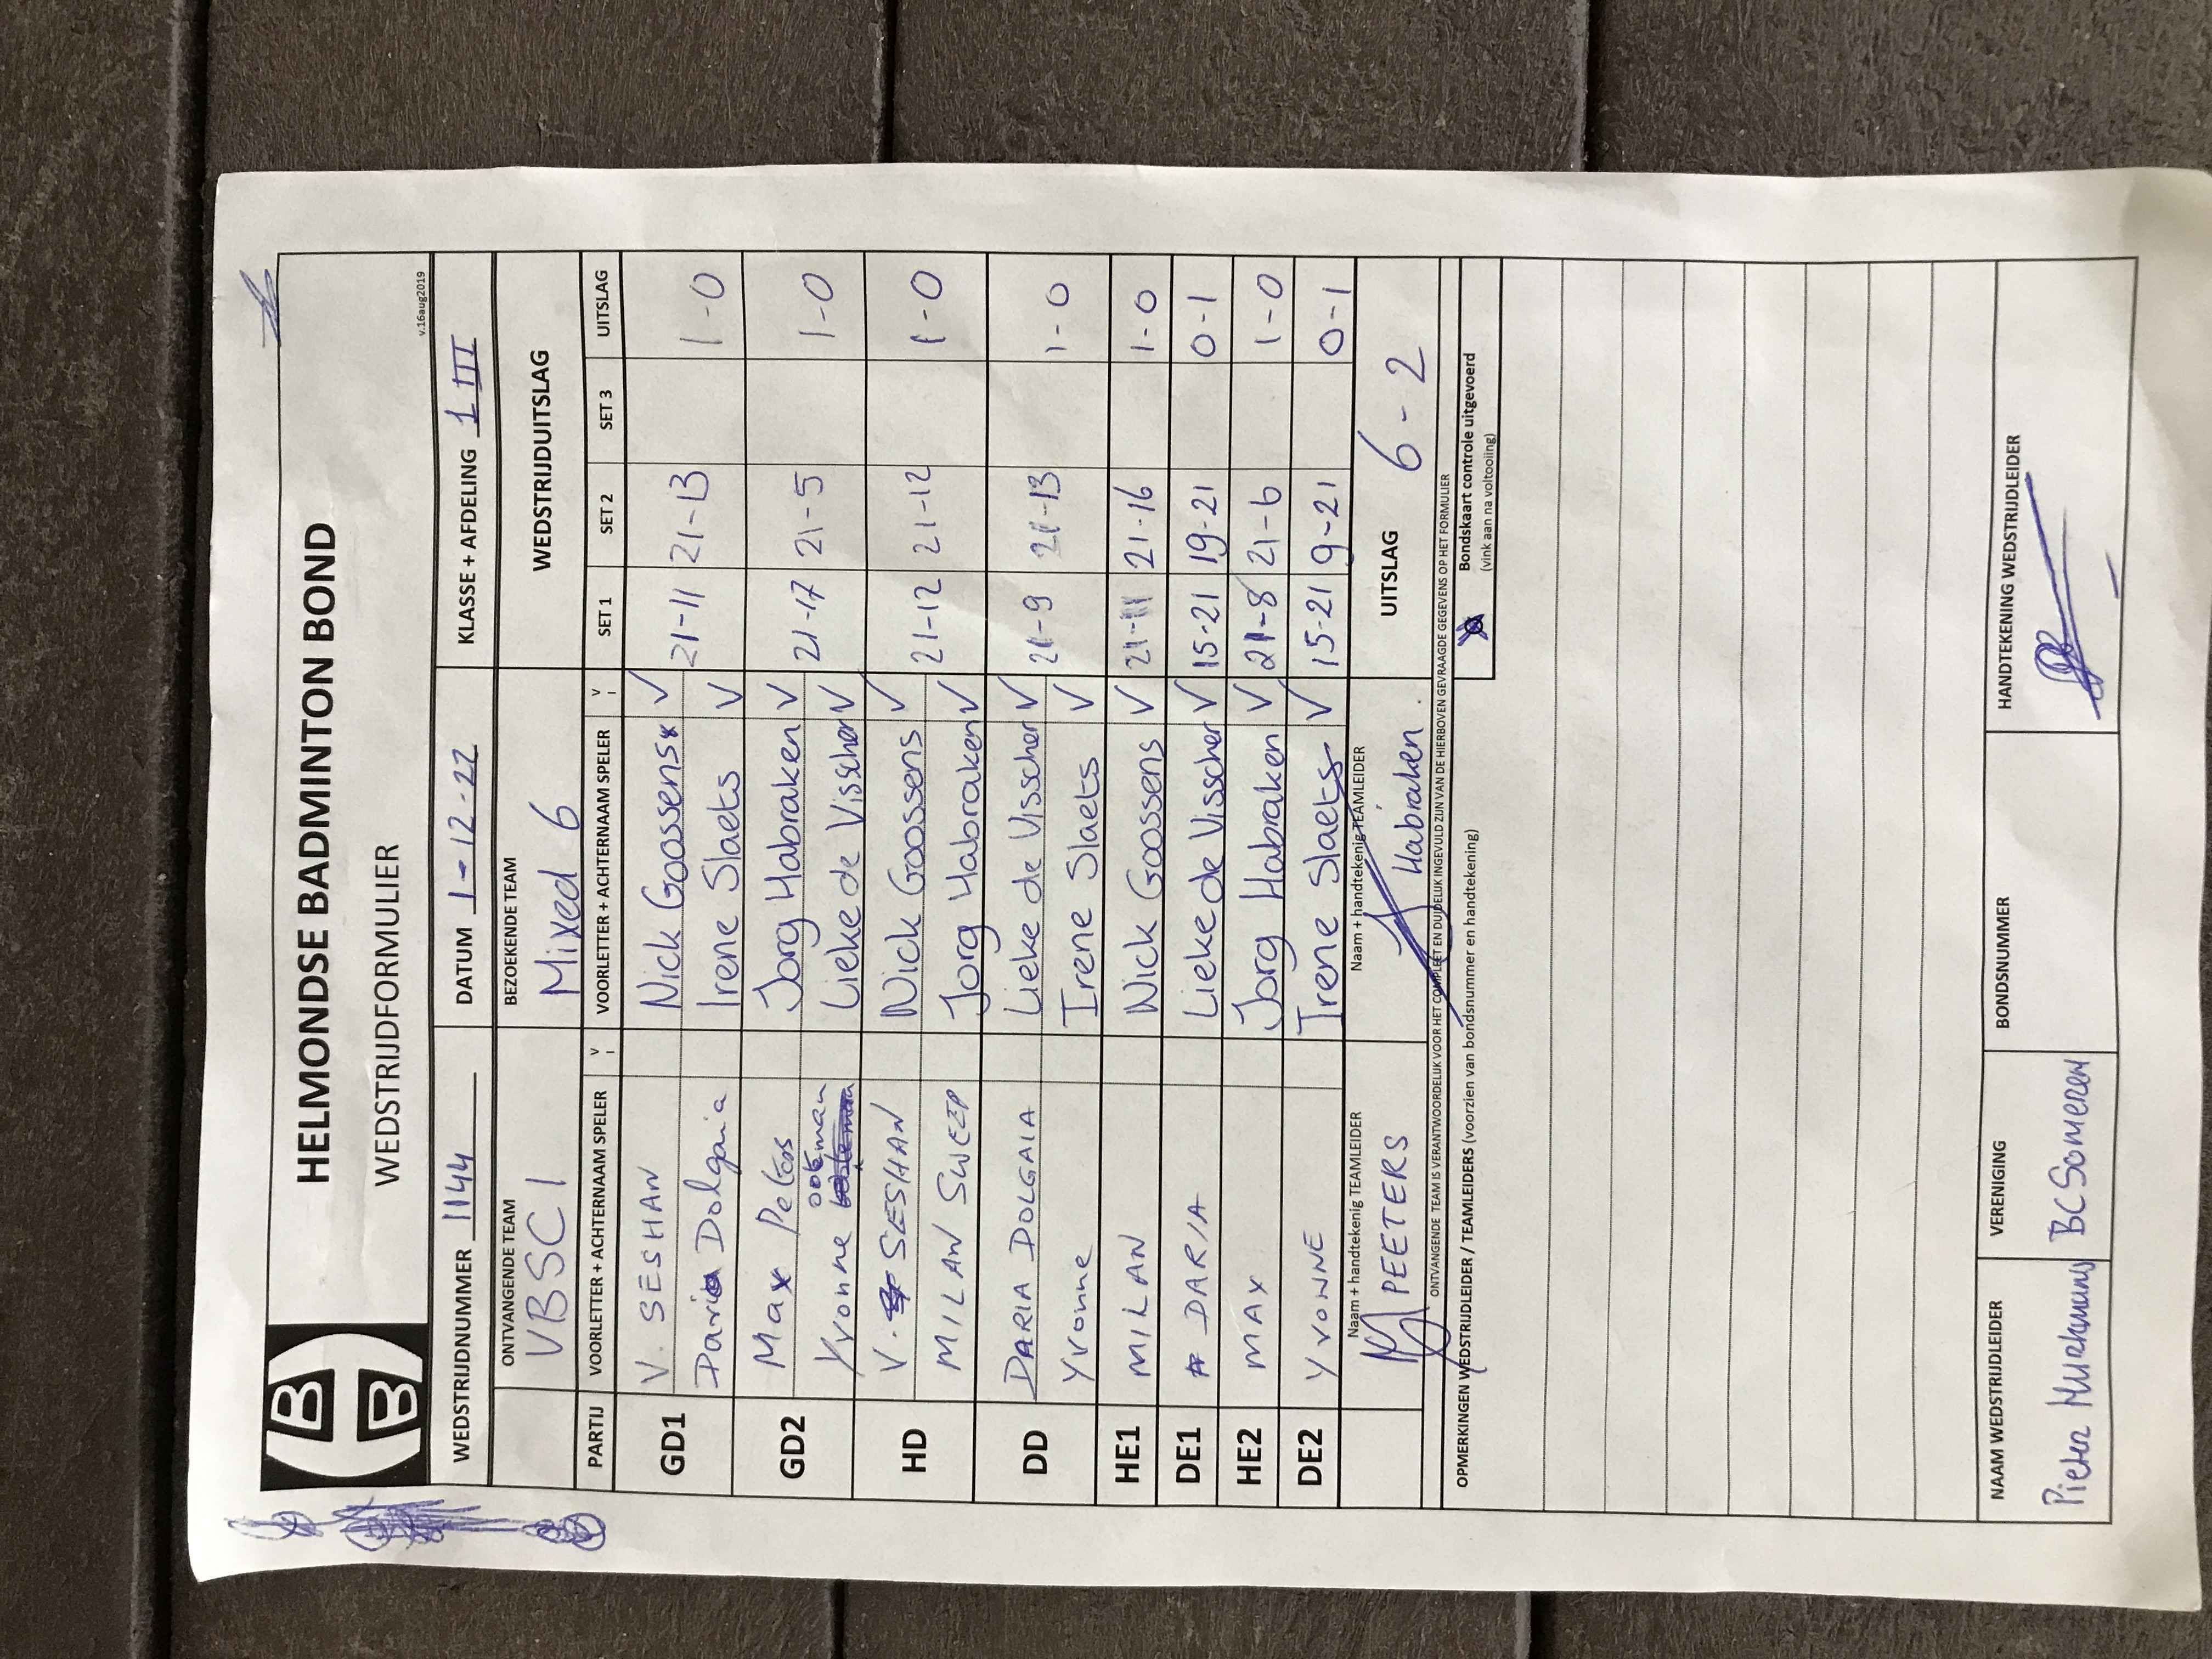 HELMONDSE BADMINTON BOND
WEDSTRIJDFORMULIER
v.16aug2019
WEDSTRIJDNUMMER 1144 DATUM 1-12-22 KLASSE + AFDELING 1 III
ONTVANGENDE TEAM BEZOEKENDE TEAM WEDSTRIJDUITSLAG
VBSC 1 Mixed 6
PARTIJ VOORLETTER + ACHTERNAAM SPELER V VOORLETTER + ACHTERNAAM SPELER V SET 1 SET 2 SET 3 UITSLAG
GD1 V. SESHAN Nick Goossens V 21-11 21-13 1-0
Daria Dolgaia Irene Slaets V
GD2 Max Peters Jorg Habraken V 21-17 21-5 1-0
Yvonne ooteman Lieke de Visscher V
HD V. SESHAN Nick Goossens V 21-12 21-12 1-0
MILAN SWEEP Jorg Habraken V
DD DARIA DOLGAIA Lieke de Visscher V 21-9 21-13 1-0
Yvonne Irene Slaets V
HE1 MILAN Nick Goossens V 21-11 21-16 1-0
DE1 DARIA Lieke de Visscher V 15-21 19-21 0-1
HE2 MAX Jorg Habraken V 21-8 21-6 1-0
DE2 YVONNE Irene Slaets V 15-21 9-21 0-1
Naam + handtekenig TEAMLEIDER Naam + handtekenig TEAMLEIDER UITSLAG 6-2
PEETERS Habraken
ONTVANGENDE TEAM IS VERANTWOORDELIJK VOOR HET COMPLEET EN DUIDELIJK INGEVULD ZIJN VAN DE HIERBOVEN GEVRAAGDE GEGEVENS OP HET FORMULIER
OPMERKINGEN WEDSTRIJDLEIDER / TEAMLEIDERS (voorzien van bondsnummer en handtekening)
Bondskaart controle uitgevoerd
(vink aan na voltooiing)
NAAM WEDSTRIJDLEIDER VERENIGING BONDSNUMMER HANDTEKENING WEDSTRIJDLEIDER
Pieter BC Someren